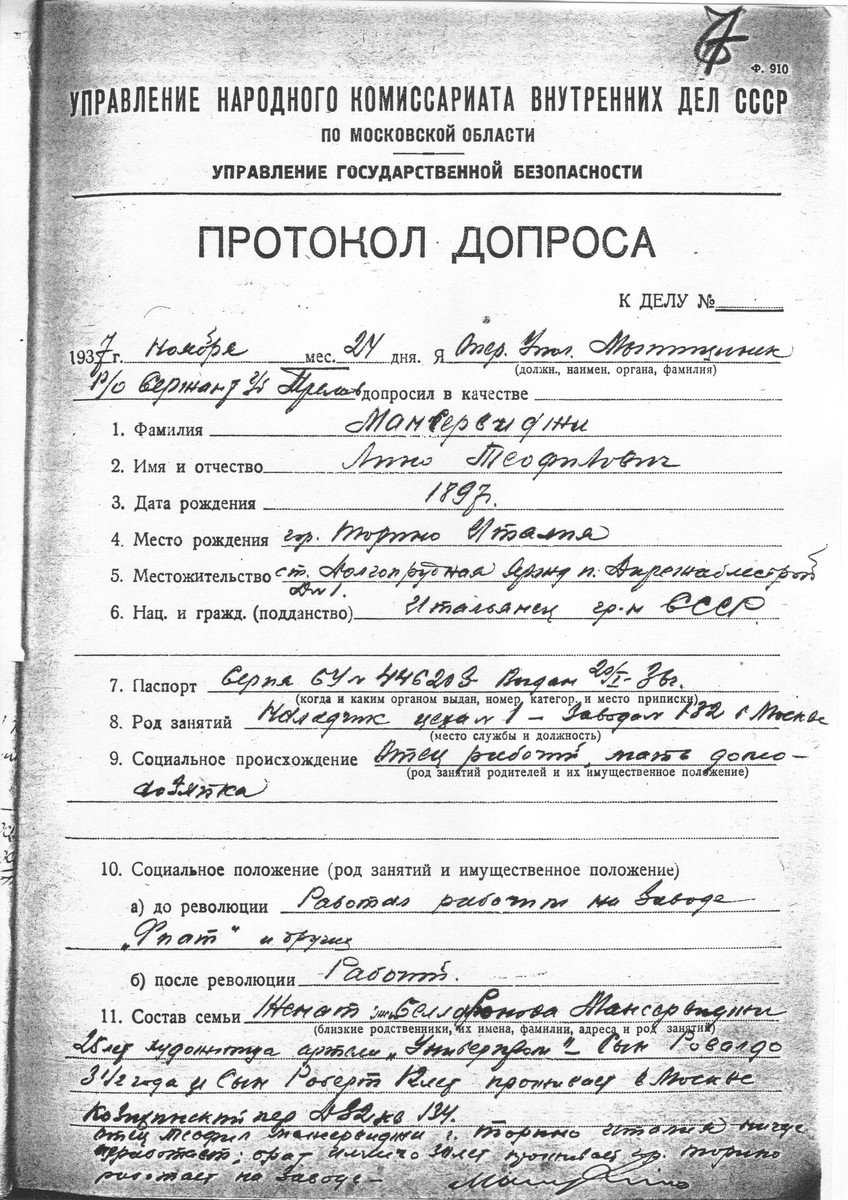 7
Ф. 910
УПРАВЛЕНИЕ НАРОДНОГО КОМИССАРИАТА ВНУТРЕННИХ ДЕЛ СССР
ПО МОСКОВСКОЙ ОБЛАСТИ
УПРАВЛЕНИЕ ГОСУДАРСТВЕННОЙ БЕЗОПАСНОСТИ
ПРОТОКОЛ ДОПРОСА
К ДЕЛУ №
1937 г. ноября мес. 24 дня. Я Опер. Упол. Мытищинск
(должн., наимен. органа, фамилия)
Р/о Сержант допросил в качестве
1. Фамилия Мансервиджи
2. Имя и отчество Лино Теофилович
3. Дата рождения 1897.
4. Место рождения гор. Торино Италия
5. Местожительство ст. Долгопрудная п. Дирежаблестрой
Д № 1.
6. Нац. и гражд. (подданство) Итальянец гр-н СССР
7. Паспорт Серия БУ № 446203 Выдан 20/I- 36г.
(когда и каким органом выдан, номер, категор. и место приписки)
8. Род занятий Наладчик цеха № 1 – Завода № 132 г Москве
(место службы и должность)
9. Социальное происхождение Отец рабочий, мать домо-
(род занятий родителей и их имущественное положение)
хозяйка
10. Социальное положение (род занятий и имущественное положение)
а) до революции Работал рабочим на Заводе
„Фиат" и других
б) после революции Рабочий.
11. Состав семьи Женат Мансервиджи
(близкие родственники, их имена, фамилии, адреса и род занятий)
28 лет артели – Сын Ровалдо
3 1/2 года и Сын Роберт 12 лет проживает в Москве
пер Д 32 кв 134.
отец Теофил Мансервиджи г. Торино Италия нигде
не работает; брат 30 лет проживает гр. Торино
работает на Заводе –